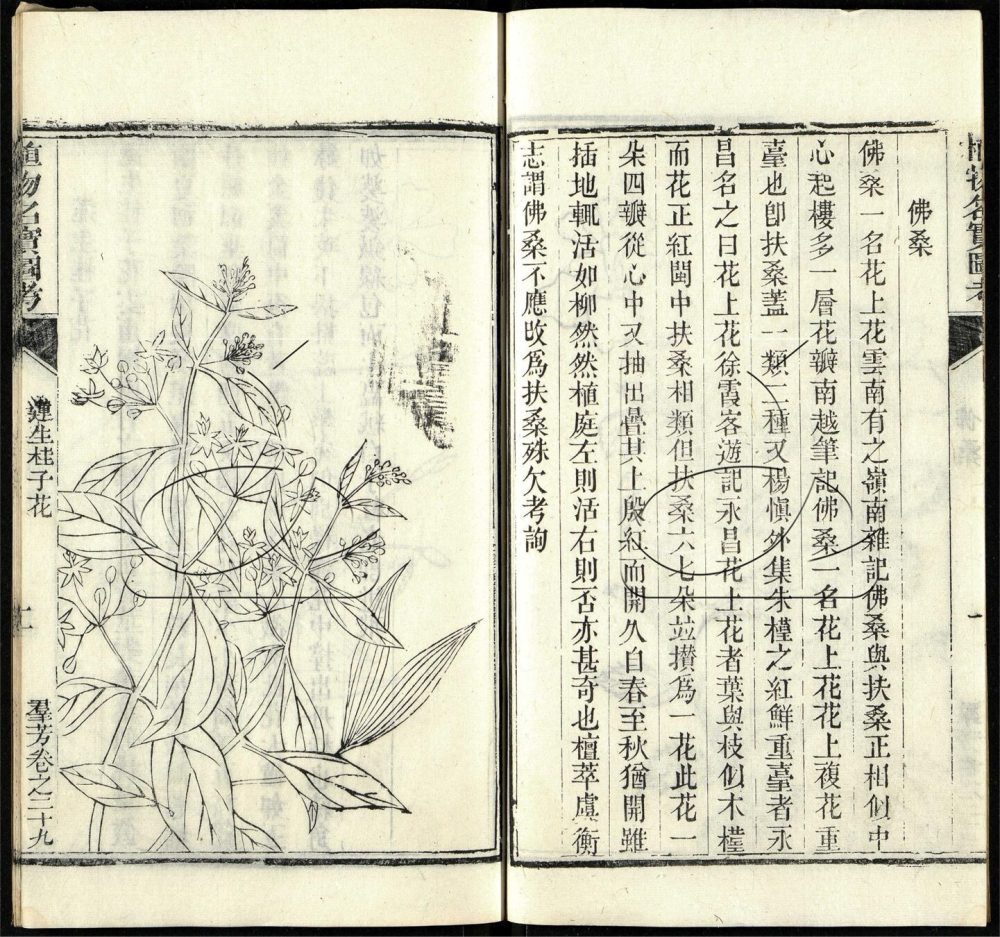 植物名實圖考
一
佛桑
佛桑一名花上花雲南有之嶺南雜記佛桑與扶桑正相似中
心起樓多一層花瓣南越筆記佛桑一名花上花花上複花重
臺也卽扶桑蓋一類二種又楊愼外集朱槿之紅鮮重臺者永
昌名之曰花上花徐霞客遊記永昌花上花者葉與枝似木槿
而花正紅閩中扶桑相類但扶桑六七朶竝攢爲一花此花一
朶四瓣從心中又抽出疊其上殷紅而開久自春至秋猶開雖
插地輒活如柳然然植庭左則活右則否亦甚奇也檀萃虞衡
志謂佛桑不應改爲扶桑殊欠考詢
植物名實圖考
蓮生桂子花
二
羣芳卷之二十九